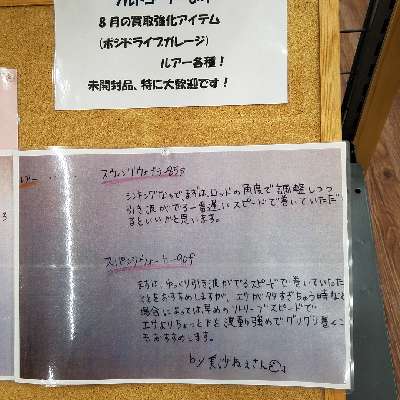 8月の買取強化アイテム
(ポジドライブガレージ)
ルアー各種!
未開封品、特に大歓迎です!
ルアー
スウィングウォブラー85S
シンキングなのでまずは、ロッドの角度で調整しつつ
引き波がでる一番速いスピードで巻いていただ
まといいかと思います。
90F
まずは、ゆっくり引き波がでるスピードで巻いていただ
ことをおすすめしますが、エサが多すぎちゃう時など
場合によっては、早めのリトリーブスピードで
エサよりちょっと下を波動強めでグリグリ巻くこ
もおすすめします。
by